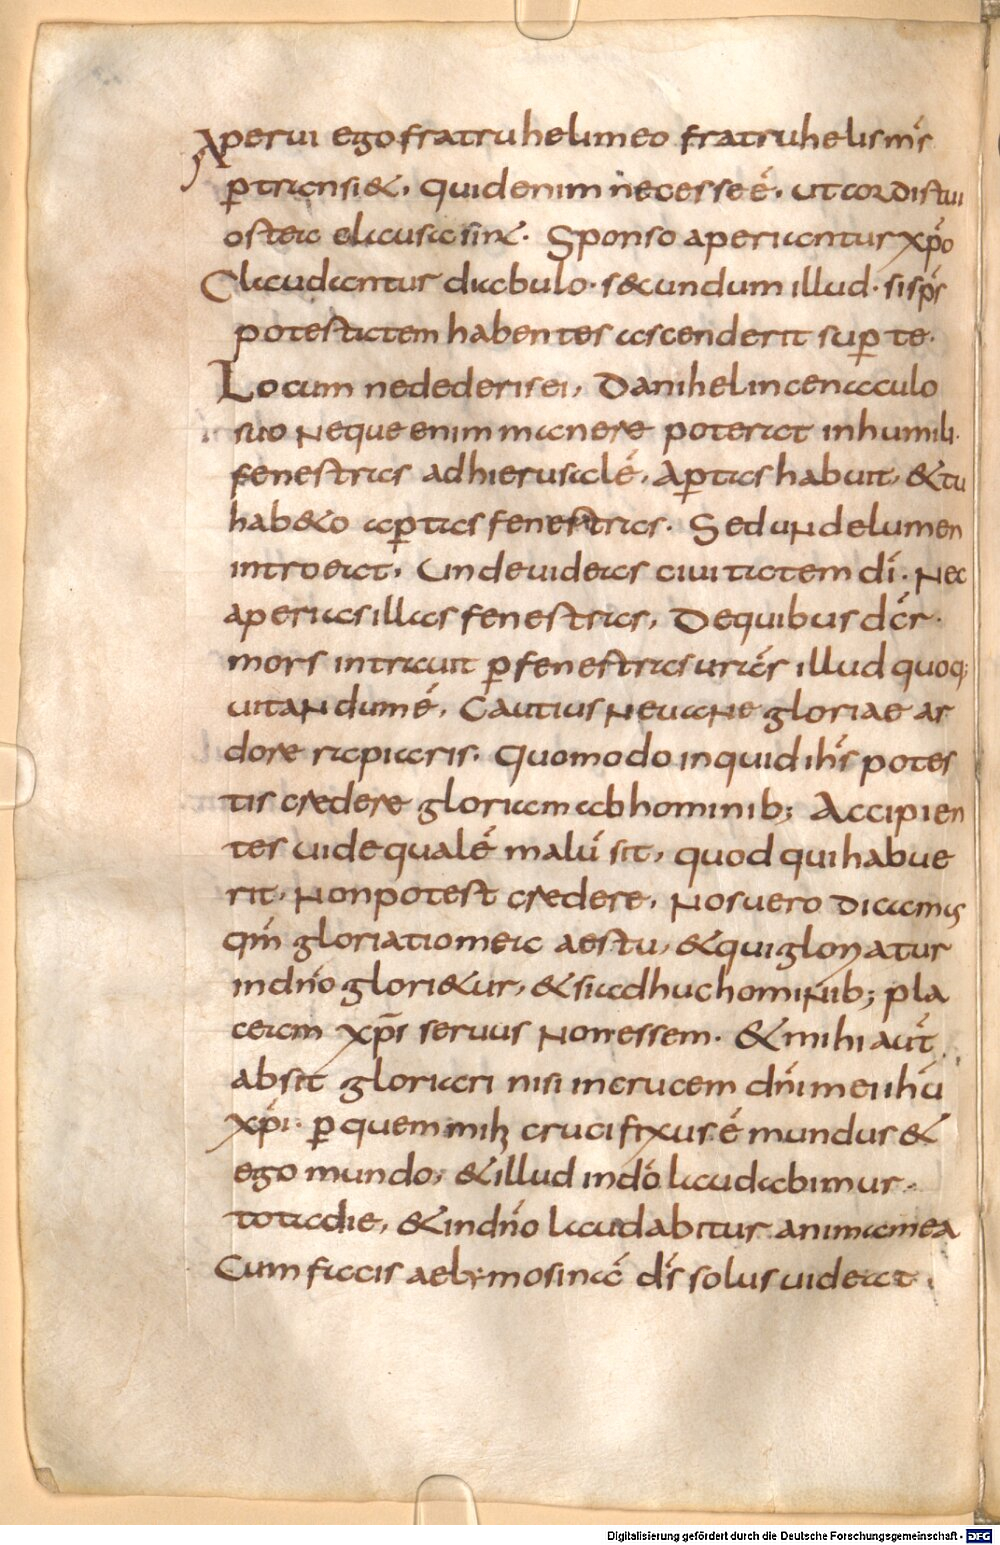 Aperui ego fratruheli meo fratruhelis m̄s
p̱transiet. quid enim necesse ē. ut cordis tui
ostea clausa sint. Sponso aperiantur xp̄o
Claudantur diabulo. secundum illud. si sp̄s
potestatem habentes ascenderit sup̱ te.
Locum ne dederis ei, Danihel in cenaculo
suo neque enim manere poterat in humili.
fenestras ad hierusalē, Ap̱tas habuit, & tu
habeto ap̱tas fenestras. Sed unde lumen
introeat, Unde uideas ciuitatem dī. Nec
aperias illas fenestras, De quibus dc̄r.
mors intrauit p̱ fenestras uras̄ illud quoq;
uitandum ē, Cautius ne uane gloriae ar
dore rapiaris. Quomodo inquid ih̄s potes
tis credere gloriam ab hominib; Accipien
tes uide quale ̄ malū sit, quod qui habue
rit, Non potest credere, Nos uero dicamus
qm̄ gloriatio mea aes tu, & qui gloriatur
in dn̄o glorietur, & si adhuc hominib; pla
ceam xp̄s seruus non essem. & mihi aut̄
absit gloriari nisi in crucem dn̄i mei ih̄u
xp̄i. p̱ quem mihi crucifixus ē mundus &
ego mundo, & illud in dō laudabimur.
tota die, & in dn̄o laudabitur anima mea
Cum facis aelymosinā ds̄ solus uideat.
Digitalisierung gefördert durch die Deutsche Forschungsgemeinschaft - DFG